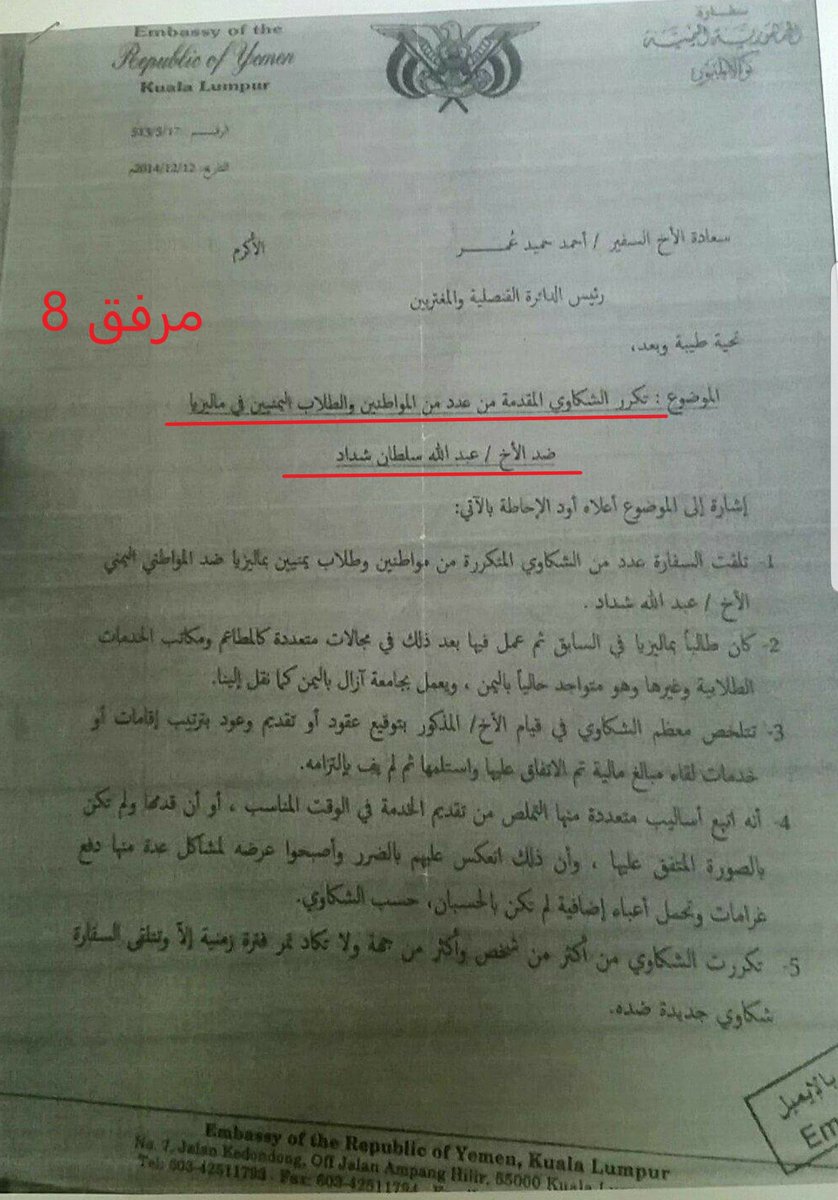 Embassy of the
Republic of Yemen
Kuala Lumpur
سفارة
الجمهورية اليمنية
كوالالمبور
الرقم: 513/5/17
التاريخ: 2014/12/12م
سعادة الأخ السفير / أحمد حميد عُمر الأكرم
رئيس الدائرة القنصلية والمغتربين
مرفق 8
تحية طيبة وبعد،
الموضوع : تكرر الشكاوي المقدمة من عدد من المواطنين والطلاب اليمنيين في ماليزيا
ضد الأخ / عبد الله سلطان شداد
إشارة إلى الموضوع أعلاه أود الإحاطة بالآتي:
1- تلقت السفارة عدد من الشكاوي المتكررة من مواطنين وطلاب يمنيين بماليزيا ضد المواطني اليمني
الأخ / عبد الله شداد .
2- كان طالباً بماليزيا في السابق ثم عمل فيها بعد ذلك في مجالات متعددة كالمطاعم ومكاتب الخدمات
الطلابية وغيرها وهو متواجد حالياً باليمن ، ويعمل بجامعة آزال باليمن كما نقل إلينا.
3- تتلخص معظم الشكاوي في قيام الأخ/ المذكور بتوقيع عقود أو تقديم وعود بترتيب إقامات أو
خدمات لقاء مبالغ مالية تم الاتفاق عليها واستلمها ثم لم يف بإلتزامه.
4- أنه اتبع أساليب متعددة منها التملص من تقديم الخدمة في الوقت المناسب ، أو أن قدمها ولم تكن
بالصورة المتفق عليها ، وأن ذلك انعكس عليهم بالضرر وأصبحوا عرضه لمشاكل عدة منها دفع
غرامات وتحمل أعباء إضافية لم تكن بالحسبان، حسب الشكاوي.
5- تكررت الشكاوي من أكثر من شخص وأكثر من جهة ولا تكاد تمر فترة زمنية إلاّ وتتلقى السفارة
شكاوي جديدة ضده.
بالإيميل
Em
Embassy of the Republic of Yemen, Kuala Lumpur
No. 7, Jalan Kedondong, Off Jalan Ampang Hilir, 55000 Kuala
Tel: 603-42511793 . Fax: 603-42511794